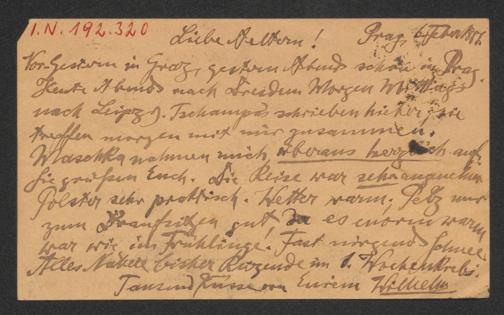 I.N. 192.320
Liebe Aeltern! Prag, 6 Feber
Vor-Gestern in Graz, gestern Abends schon in Prag.
Heute Abends nach Dresden Morgen Mittags
nach Leipzg. Tschamps schrieben hieher, sie
treffen morgen mit mir zusammen.
Maschka nahmen mich überaus herzlich auf.
Sie grüßen Euch. Die Reise war sehr angenehm
Polster sehr praktisch. Wetter warm. Pelz nur
zum Draufsitzen gut! Da es enorm warm
war wie im Frühlinge! Fast nirgends Schnee
Alles Nähere bisher im
Tausend Küsse von Eurem Wilhelm